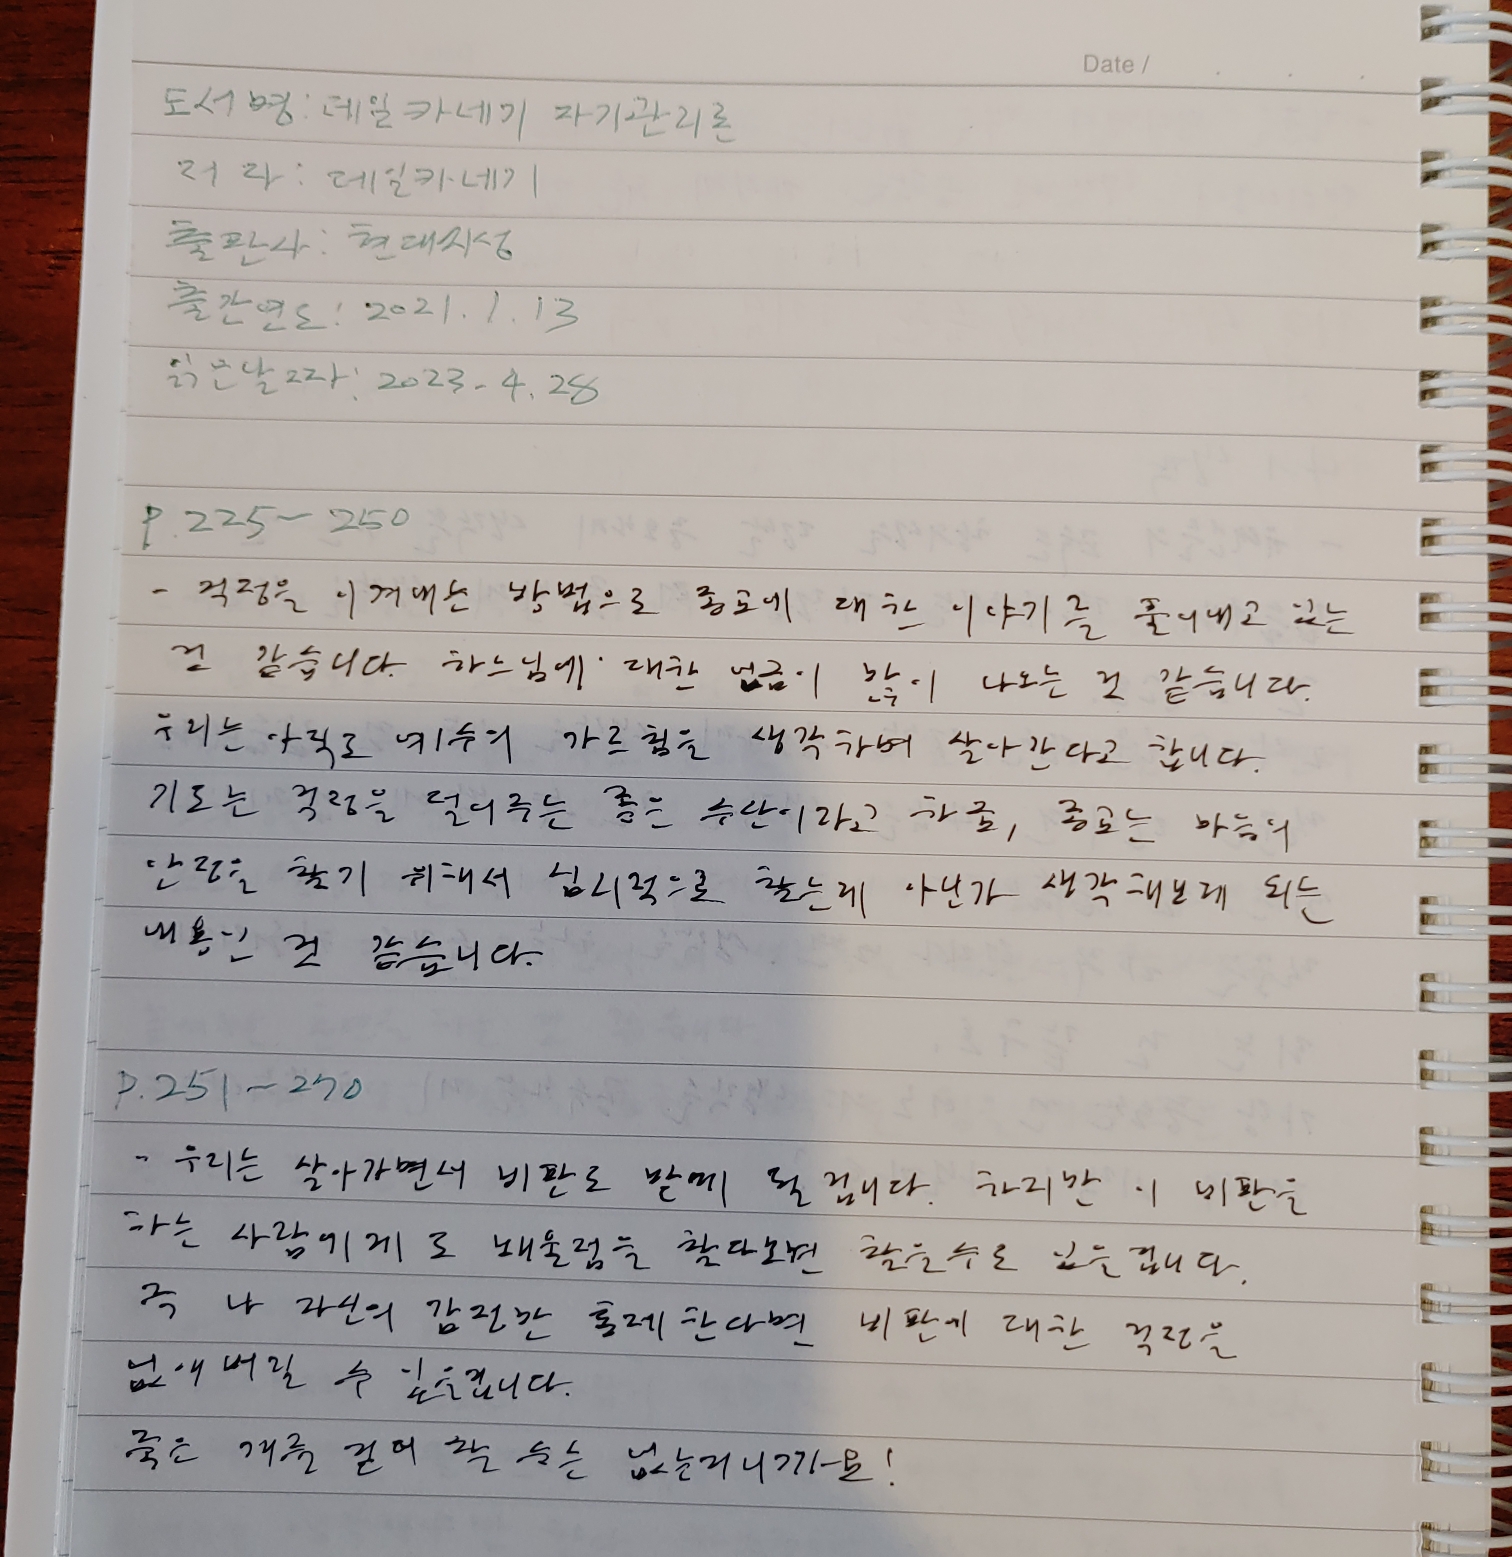 Date / . . .
도서명: 데일카네기 자기관리론
저 자: 데일카네기
출판사: 현대지성
출간연도: 2021. 1. 13
읽은날짜: 2023. 4. 28
P. 225~250
- 걱정을 이겨내는 방법으로 종교에 대한 이야기를 풀어내고 있는
것 같습니다. 하느님에 대한 언급이 많이 나오는 것 같습니다.
우리는 아직도 예수의 가르침을 생각하며 살아간다고 합니다.
기도는 걱정을 덜어주는 좋은 수단이라고 하죠, 종교는 마음의
안정을 찾기 위해서 심리적으로 찾는게 아닌가 생각해보게 되는
내용인 것 같습니다.
P. 251~270
- 우리는 살아가면서 비판도 받게 될 겁니다. 하지만 이 비판을
하는 사람에게 도 배울점을 찾다보면 찾을수도 있을겁니다.
즉 나 자신의 감정만 통제한다면 비판에 대한 걱정을
없애 버릴 수 있을겁니다.
죽은 개를 걷어 찰 수는 없는거니까요!